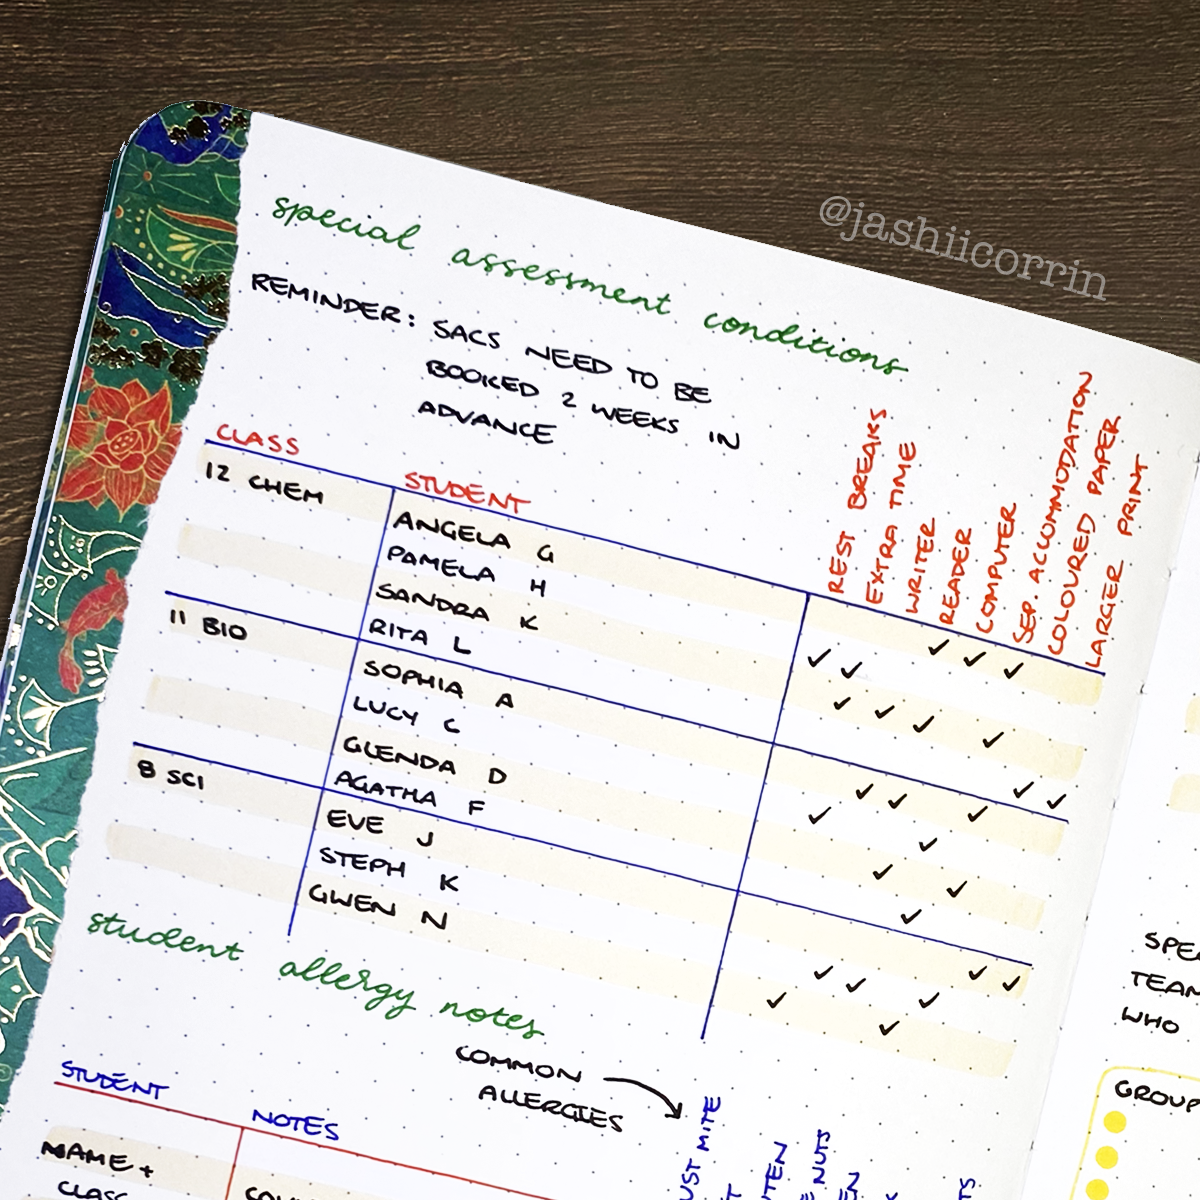 @jashiicorrin
special assessment conditions
REMINDER: SACS NEED TO BE
BOOKED 2 WEEKS IN
ADVANCE
CLASS STUDENT REST BREAKS EXTRA TIME WRITER READER COMPUTER SEP. ACCOMMODATION COLOURED PAPER LARGER PRINT
12 CHEM ANGELA G ✓ ✓ ✓
PAMELA H ✓ ✓
SANDRA K ✓ ✓ ✓ ✓
RITA L
11 BIO SOPHIA A ✓ ✓
LUCY C ✓ ✓ ✓ ✓
GLENDA D ✓ ✓ ✓
AGATHA F ✓
8 SCI EVE J ✓ ✓
STEPH K ✓ ✓ ✓
GWEN N ✓ ✓
student allergy notes
COMMON
ALLERGIES
STUDENT NOTES UST MITE NUTS
NAME +
CLASS
WHO
GROUP